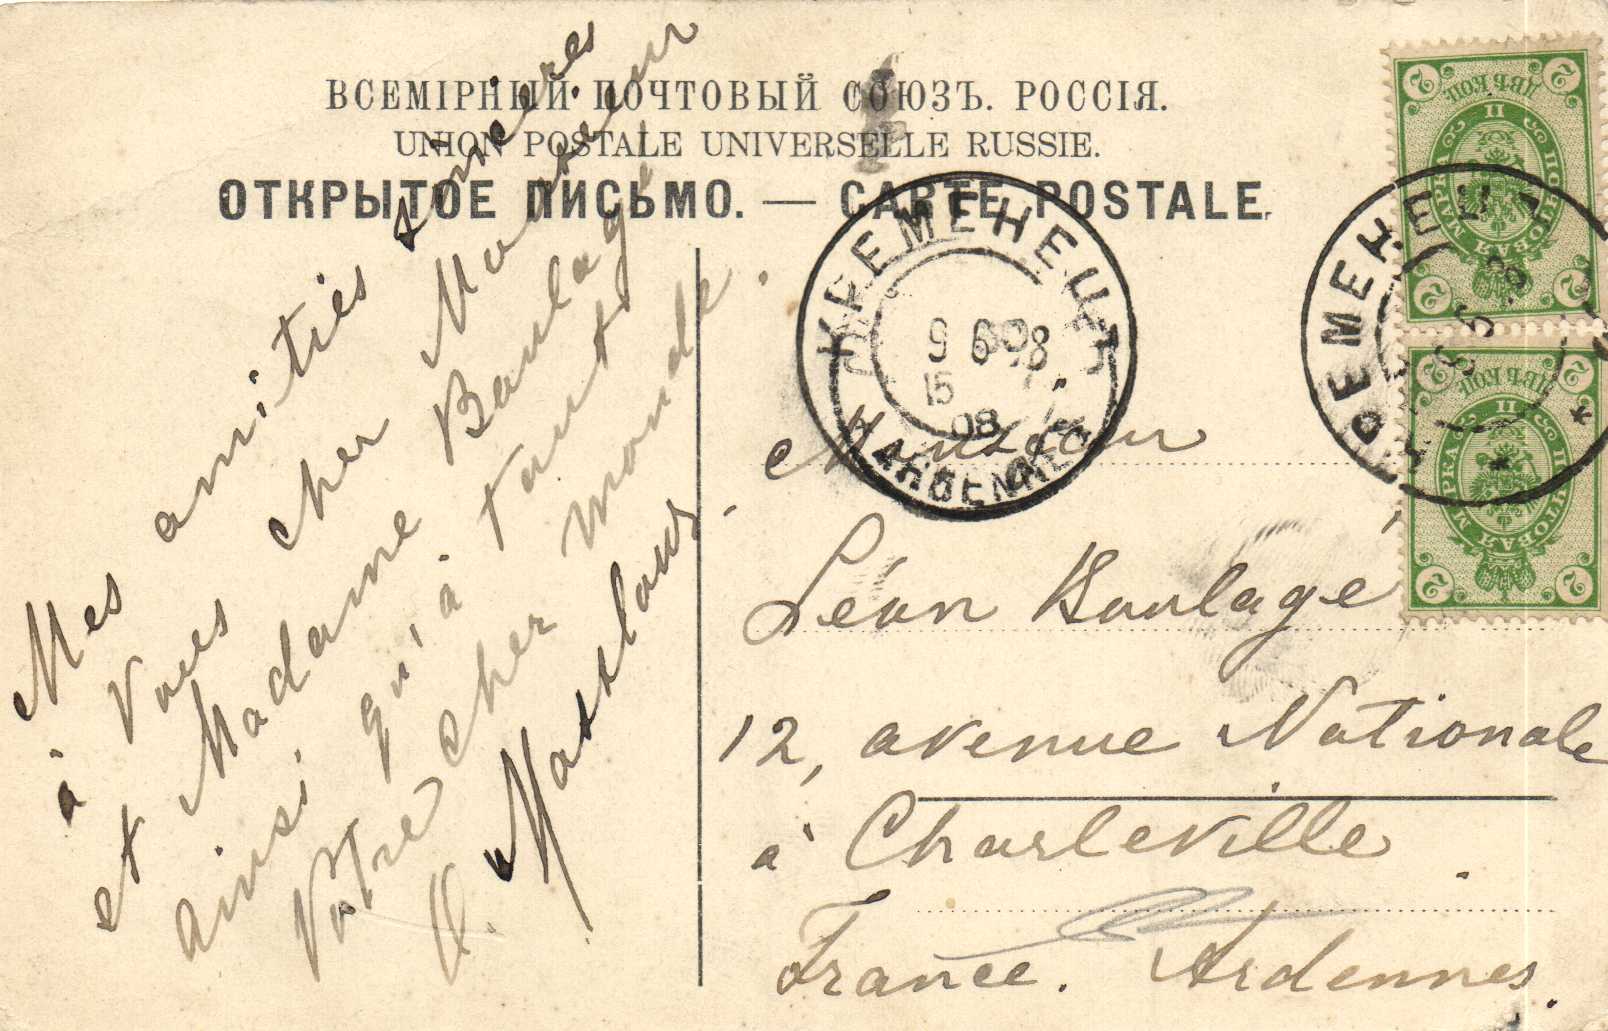 ВСЕМІРНЫЙ ПОЧТОВЫЙ СОЮЗЪ. РОССІЯ.
UNION POSTALE UNIVERSELLE RUSSIE.
ОТКРЫТОЕ ПИСЬМО. — CARTE POSTALE.
Mes amitiés sincères
à vous cher Monsieur
et Madame Baulagé
ainsi qu'à tout
Votre cher monde.
ДВѢ КОП.
ПОЧТОВАЯ МАРКА
2
ДВѢ КОП.
ПОЧТОВАЯ МАРКА
2
КРЕМЕНЕЦЪ
КРЕМЕНЕЦЪ
08
Monsieur
Léon Baulagé
12, avenue Nationale
à Charleville
France. Ardennes.